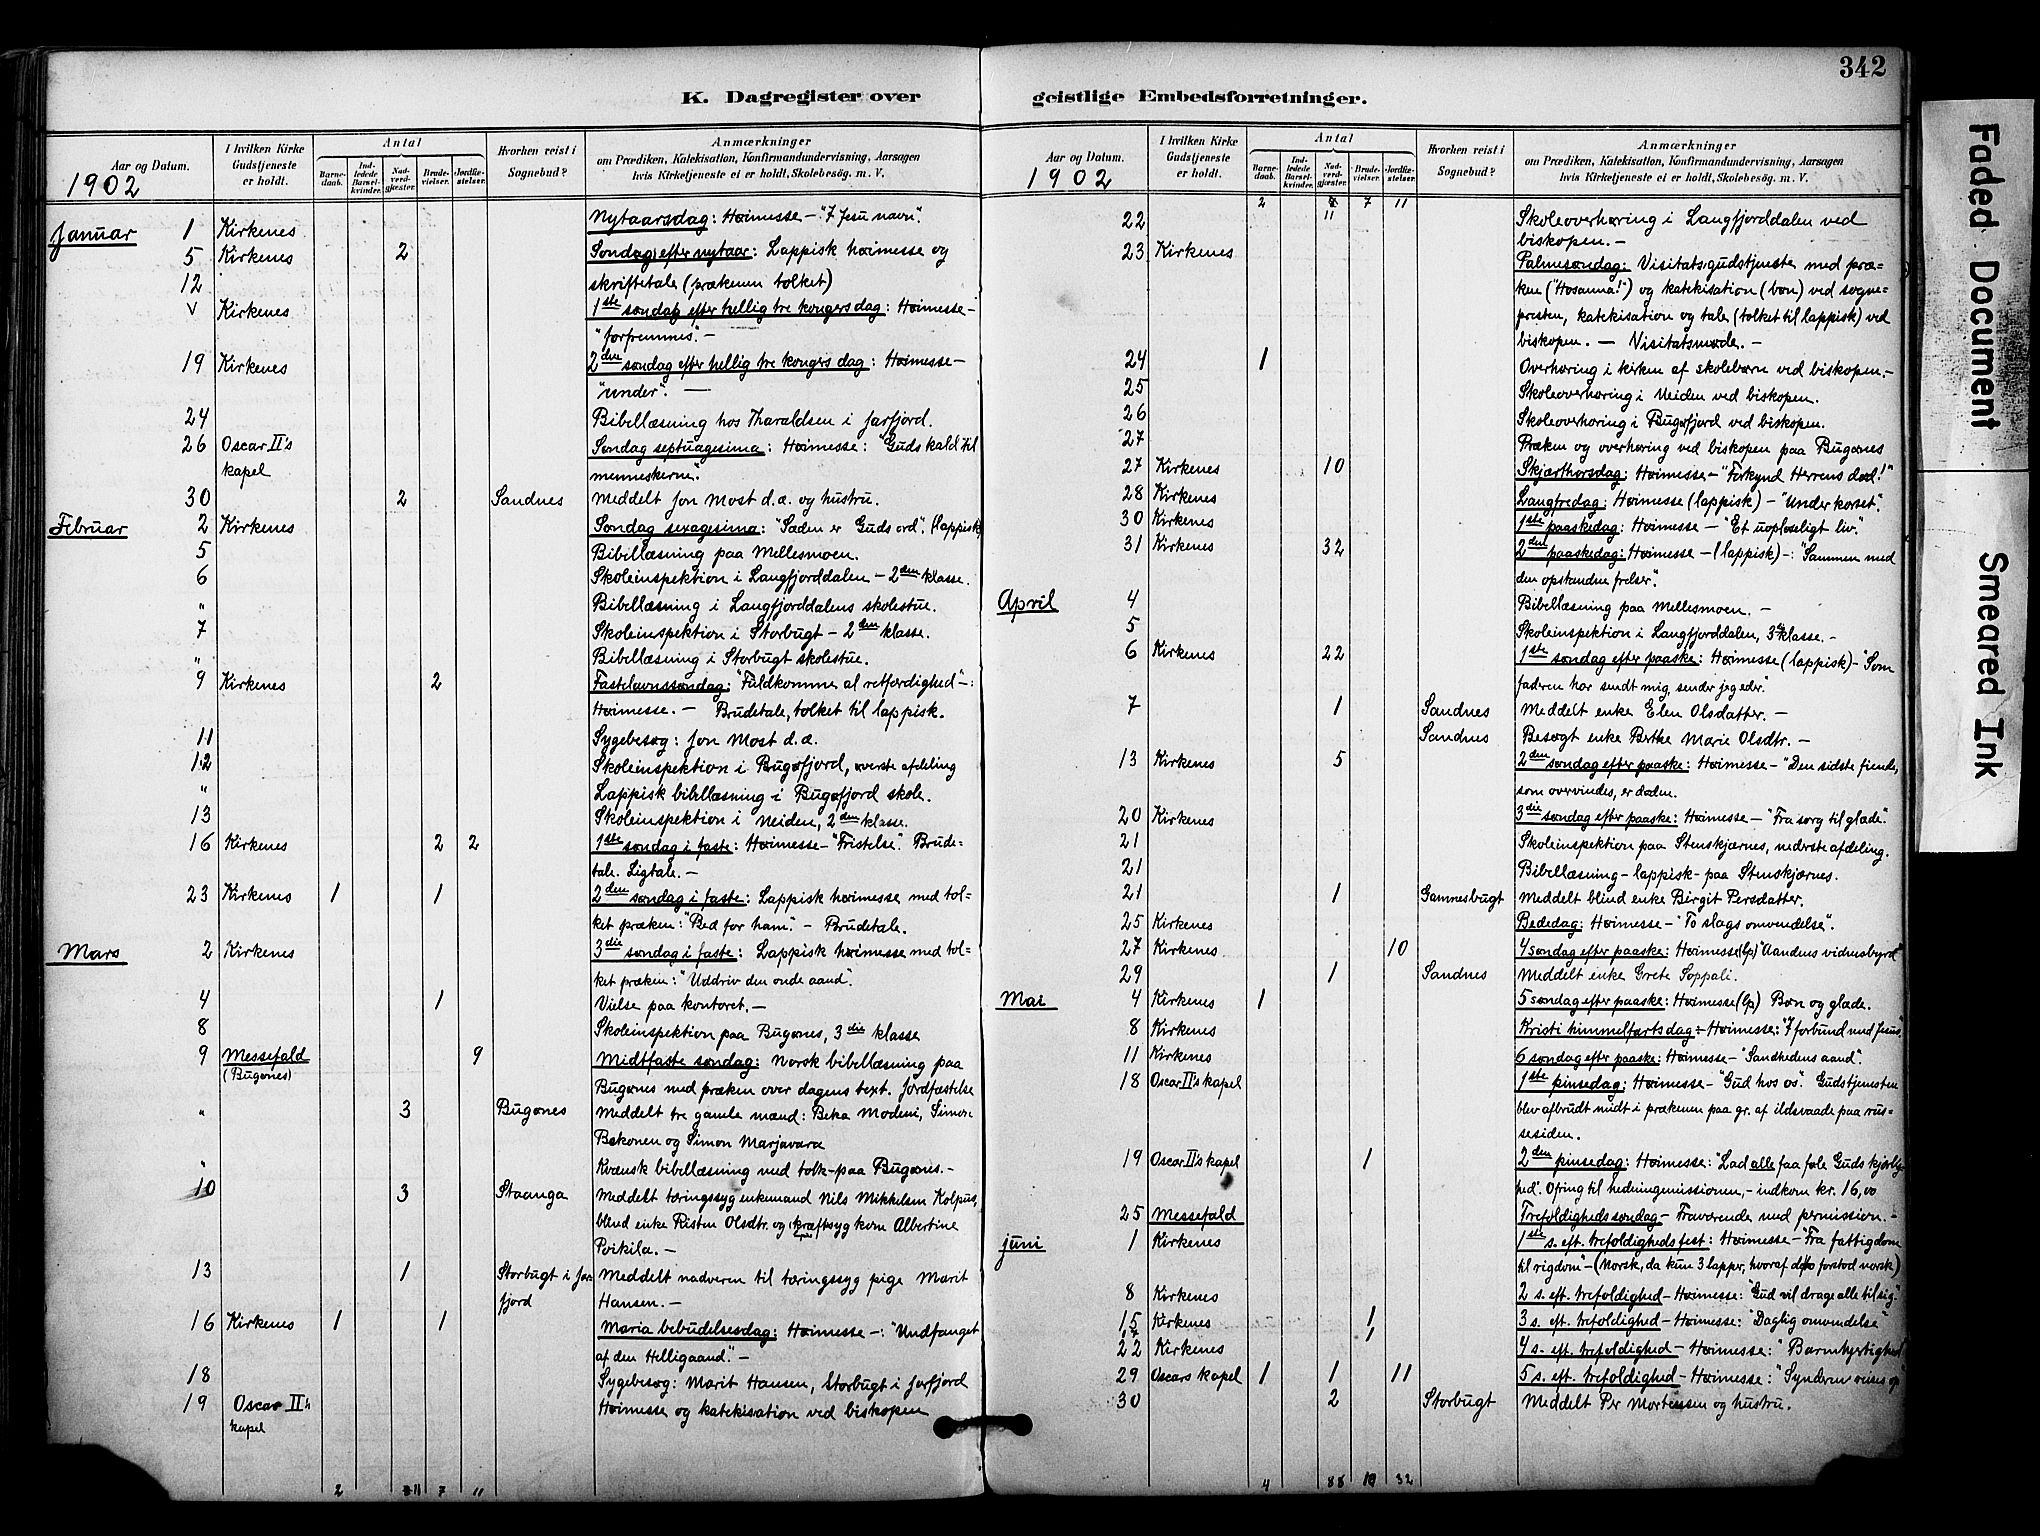 342
K. Dagregister over geistlige Embedsforretninger.
Aar og Datum.
1902
I hvilken Kirke Gudstjeneste er holdt.
Antal
Barnedaab.
Indledede Barselkvinder.
Nadverdgjæster.
Brudevielser.
Jordfæstelser.
Hvorhen reist i Sognebud?
Anmærkninger
om Prædiken, Katekisation, Konfirmandundervisning, Aarsagen
hvis Kirketjeneste ei er holdt, Skolebesøg. m. V.
Januar 1 Kirkenes Nytaarsdag: Høimesse – "I Jesu navn".
5 Kirkenes 2 Søndag efter nytaar: Lappisk høimesse og
12 skriftetale (prækenen tolket)
v Kirkenes 1ste søndag efter hellig tre kongers dag: Høimesse –
"forfremmes". –
19 Kirkenes 2den søndag efter hellig tre kongers dag: Høimesse –
"under". —
24 Bibellæsning hos Tharaldsen i Jarfjord.
26 Oscar II's Søndag septuagesima: Høimesse: "Guds kald til
kapel menneskerne".
30 2 Sandnes Meddelt Jon Most d.æ. og hustru.
Februar 2 Kirkenes Søndag sexagesima: "Sæden er Guds ord". (lappisk)
5 Bibellæsning paa Mellesmoen.
6 Skoleinspektion i Langfjorddalen – 2den klasse.
" Bibellæsning i Langfjorddalens skolestue.
7 Skoleinspektion i Storbugt – 2den klasse.
" Bibellæsning i Storbugt skolestue.
9 Kirkenes 2 Fastelavnssøndag: "Fuldkomme al retfærdighed" –:
Høimesse. – Brudetale, tolket til lappisk.
11 Sygebesøg: Jon Most d.æ.
12 Skoleinspektion i Bugøfjord, øverste afdeling
" Lappisk bibellæsning i Bugøfjord skole.
13 Skoleinspektion i Neiden, 2den klasse.
16 Kirkenes 2 2 1ste søndag i faste: Høimesse – "Fristelse". Brude-
tale. Ligtale. –
23 Kirkenes 1 1 2den søndag i faste: Lappisk høimesse med tol-
ket præken: "Bed for ham". – Brudetale.
Mars 2 Kirkenes 3die søndag i faste: Lappisk høimesse med tol-
ket præken: "Uddriv den onde aand".
4 1 Vielse paa kontoret. –
8 Skoleinspektion paa Bugønes, 3die klasse
9 Messefald 9 Midtfaste søndag: Norsk bibellæsning paa
(Bugønes) Bugønes med præken over dagens text. Jordfæstelse
" 3 Bugønes Meddelt tre gamle mænd: Beka Modeni, Simon
Bekonen og Simon Marjavara
" Kvænsk bibellæsning med tolk – paa Bugønes. –
10 3 Staanga Meddelt tæringssyg enkemand Nils Mikkelsen Kolpus,
blind enke Risten Olsdtr. og kræftsyg kone Albertine
Poikila. –
13 1 Storbugt i Jar Meddelt nadveren til tæringssyg pige Marit
fjord Hansen. –
16 Kirkenes 1 1 Maria bebudelsesdag: Høimesse –: "Undfanget
af den Helligaand". –
18 Sygebesøg: Marit Hansen, Storbugt i Jarfjord
19 Oscar II's Høimesse og katekisation ved biskopen
kapel
2 11 7 11
Aar og Datum.
1902
I hvilken Kirke Gudstjeneste er holdt.
Antal
Barnedaab.
Indledede Barselkvinder.
Nadverdgjæster.
Brudevielser.
Jordfæstelser.
Hvorhen reist i Sognebud?
Anmærkninger
om Prædiken, Katekisation, Konfirmandundervisning, Aarsagen
hvis Kirketjeneste ei er holdt, Skolebesøg. m. V.
2 11 7 11
22 Skoleoverhøring i Langfjorddalen ved
biskopen. –
23 Kirkenes Palmesøndag: Visitatsgudstjeneste med præ-
ken ("Hosanna!") og katekisation (bøn) ved sogne-
presten, katekisation og tale (tolket til lappisk) ved
biskopen. — Visitatsmøde. –
24 1 Overhøring i kirken af skolebørn ved biskopen. –
25 Skoleoverhøring i Neiden ved biskopen.
26 Skoleoverhøring i Bugøfjord ved biskopen.
27 Præken og overhøring ved biskopen paa Bugønes
27 Kirkenes 10 Skjærthorsdag: Høimesse – "Forkynd Herrens død!"
28 Kirkenes Langfredag: Høimesse (lappisk) – "Under korset".
30 Kirkenes 1ste paaskedag: Høimesse – "Et uopløseligt liv".
31 Kirkenes 32 2den paaskedag: Høimesse – (lappisk) –: "Sammen med
den opstandne frelser".
April 4 Bibellæsning paa Mellesmoen. –
5 Skoleinspektion i Langfjorddalen, 3die klasse. –
6 Kirkenes 22 1ste søndag efter paaske: Høimesse (lappisk) – "Som
faderen har sendt mig, sender jeg eder".
7 1 Sandnes Meddelt enke Elen Olsdatter. –
Sandnes Besøgt enke Berthe Marie Olsdtr. –
13 Kirkenes 5 2den søndag efter paaske: Høimesse – "Den sidste fiende,
som overvindes, er døden.
20 Kirkenes 3die søndag efter paaske: Høimesse – "Fra sorg til glæde".
21 Skoleinspektion paa Stenskjærnes, nederste afdeling.
21 Bibellæsning – lappisk – paa Stenskjærnes.
21 1 Gamnesbugt Meddelt blind enke Birgit Persdatter.
25 Kirkenes Bededag: Høimesse – "To slags omvendelse".
27 Kirkenes 10 4 søndag efter paaske: Høimesse (lp) "Aandens vidnesbyrd"
29 1 Sandnes Meddelt enke Grete Soppali.
Mai 4 Kirkenes 1 5 søndag efter paaske: Høimesse (lp) Bøn og glæde.
8 Kirkenes Kristi himmelfartsdag: Høimesse: "I forbund med Jesus".
11 Kirkenes 6 søndag efter paaske: Høimesse – "Sandhedens aand".
18 Oscar II's kapel 1ste pinsedag: Høimesse – "Gud hos os". Gudstjenesten
blev afbrudt midt i prækenen paa gr. af ildsvaade paa rus-
sesiden.
19 Oscar II's kapel 1 2den pinsedag: Høimesse: "Lad alle faa føle Guds kjærlig-
hed". Ofring til hedningemissionen, – indkom kr. 16,00
25 Messefald Trefoldigheds søndag – Fraværende med permission. –
Juni 1 Kirkenes 1ste s. eft. trefoldigheds fest: Høimesse – "Fra fattigdom
til rigdom" – (Norsk, da kun 3 lapper, hvoraf de to forstod norsk)
8 Kirkenes 2 s. eft. trefoldighed – Høimesse: "Gud vil drage alle til sig."
15 Kirkenes 1 3 s. eft. trefoldighed – Høimesse: "Daglig omvendelse"
17 1
22 Kirkenes 4 s. eft. trefoldighed – Høimesse: "Barmhjertighed
29 Oscars kapel 1 1 11 5 s. eft. trefoldighed – Høimesse: "Synderen reises op
30 2 Storbugt Meddelt Per Mortensen og hustru.
4 88 10 32
Faded Document
Smeared Ink